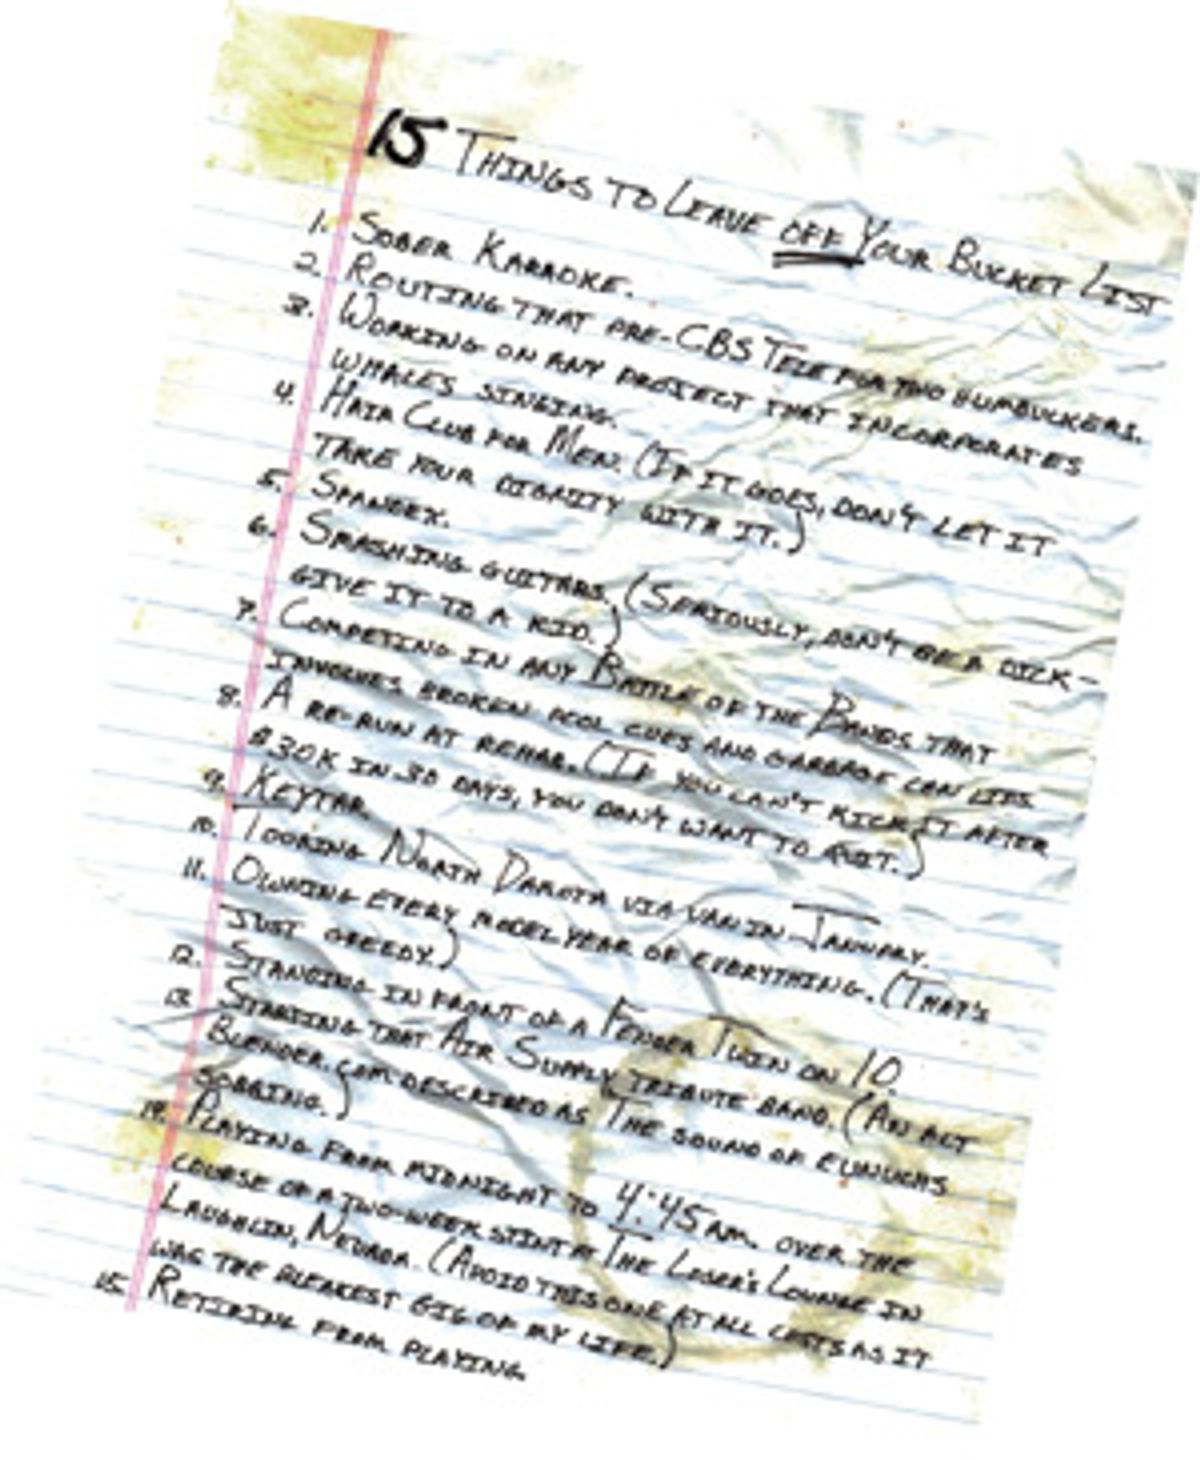 15 THINGS TO LEAVE OFF YOUR BUCKET LIST
1. SOBER KARAOKE.
2. ROUTING THAT PRE-CBS TELE FOR TWO HUMBUCKERS.
3. WORKING ON ANY PROJECT THAT INCORPORATES
WHALES SINGING.
4. HAIR CLUB FOR MEN. (IF IT GOES, DON'T LET IT
TAKE YOUR DIGNITY WITH IT.)
5. SPANDEX.
6. SMASHING GUITARS. (SERIOUSLY, DON'T BE A DICK-
GIVE IT TO A KID.)
7. COMPETING IN ANY BATTLE OF THE BANDS THAT
INVOLVES BROKEN POOL CUES AND GARBAGE CAN LIDS.
8. A RE-RUN AT REHAB. (IF YOU CAN'T KICK IT AFTER
$30K IN 30 DAYS, YOU DON'T WANT TO QUIT.)
9. KEYTAR
10. TOURING NORTH DAKOTA VIA VAN IN JANUARY.
11. OWNING EVERY MODEL YEAR OF EVERYTHING. (THAT'S
JUST GREEDY.)
12. STANDING IN FRONT OF A FENDER TWIN ON 10.
13. STARTING THAT AIR SUPPLY TRIBUTE BAND. (AN ACT
BLENDER.COM DESCRIBED AS THE SOUND OF EUNUCHS
SOBBING.)
14. PLAYING FROM MIDNIGHT TO 4:45 AM. OVER THE
COURSE OF A TWO-WEEK STINT AT THE LOSER'S LOUNGE IN
LAUGHLIN, NEVADA. (AVOID THIS ONE AT ALL COSTS AS IT
WAS THE BLEAKEST GIG OF MY LIFE.)
15. RETIRING FROM PLAYING